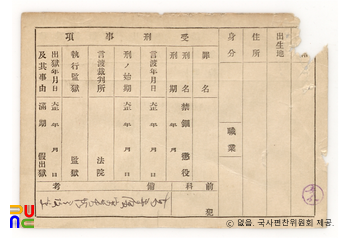 出生地
住所
身分
職業
受刑事項
罪名
刑名
刑期
禁錮 懲役
言渡年月日
大正 年 月 日
刑ノ始期
大正 年 月 日
言渡裁判所
法院
執行監獄
監獄
出獄年月日
年 月 日
及其事由
滿期 假出獄
前科
犯
備考
© 없음, 국사편찬위원회 제공.